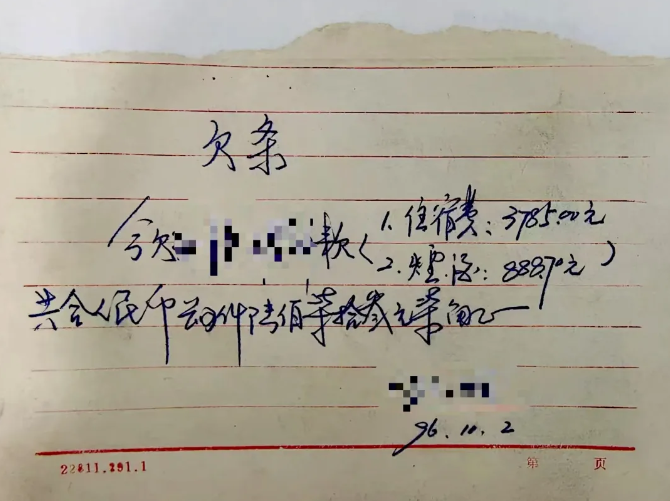 欠条
今欠 款(1.住宿费:3785.00元
2.烟酒:888.70元)
共合人民币 仟陆佰柒拾叁元柒角正
96.10.2
22811.291.1 第 页